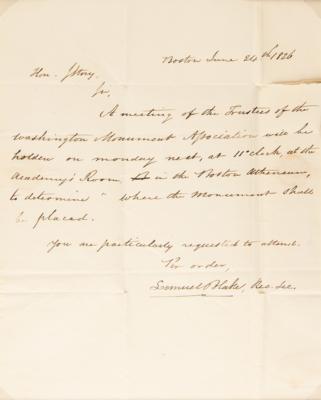 Boston June 24th 1826
Hon. J Story.
Sr,
A meeting of the Trustees of the
Washington Monument Association will be
holden on monday next, at 11 oclock, at the
Academy's Room, in the Boston Atheneum,
to determine "where the Monument shall
be placed.
You are particularly requested to attend.
Per order,
Lemuel Blake, Rec. Sec.